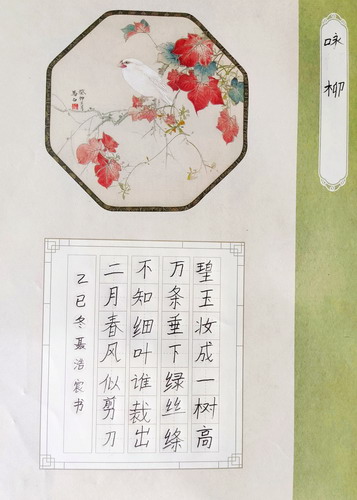 咏柳
碧玉妆成一树高
万条垂下绿丝绦
不知细叶谁裁出
二月春风似剪刀
乙巳冬聂浩宸书